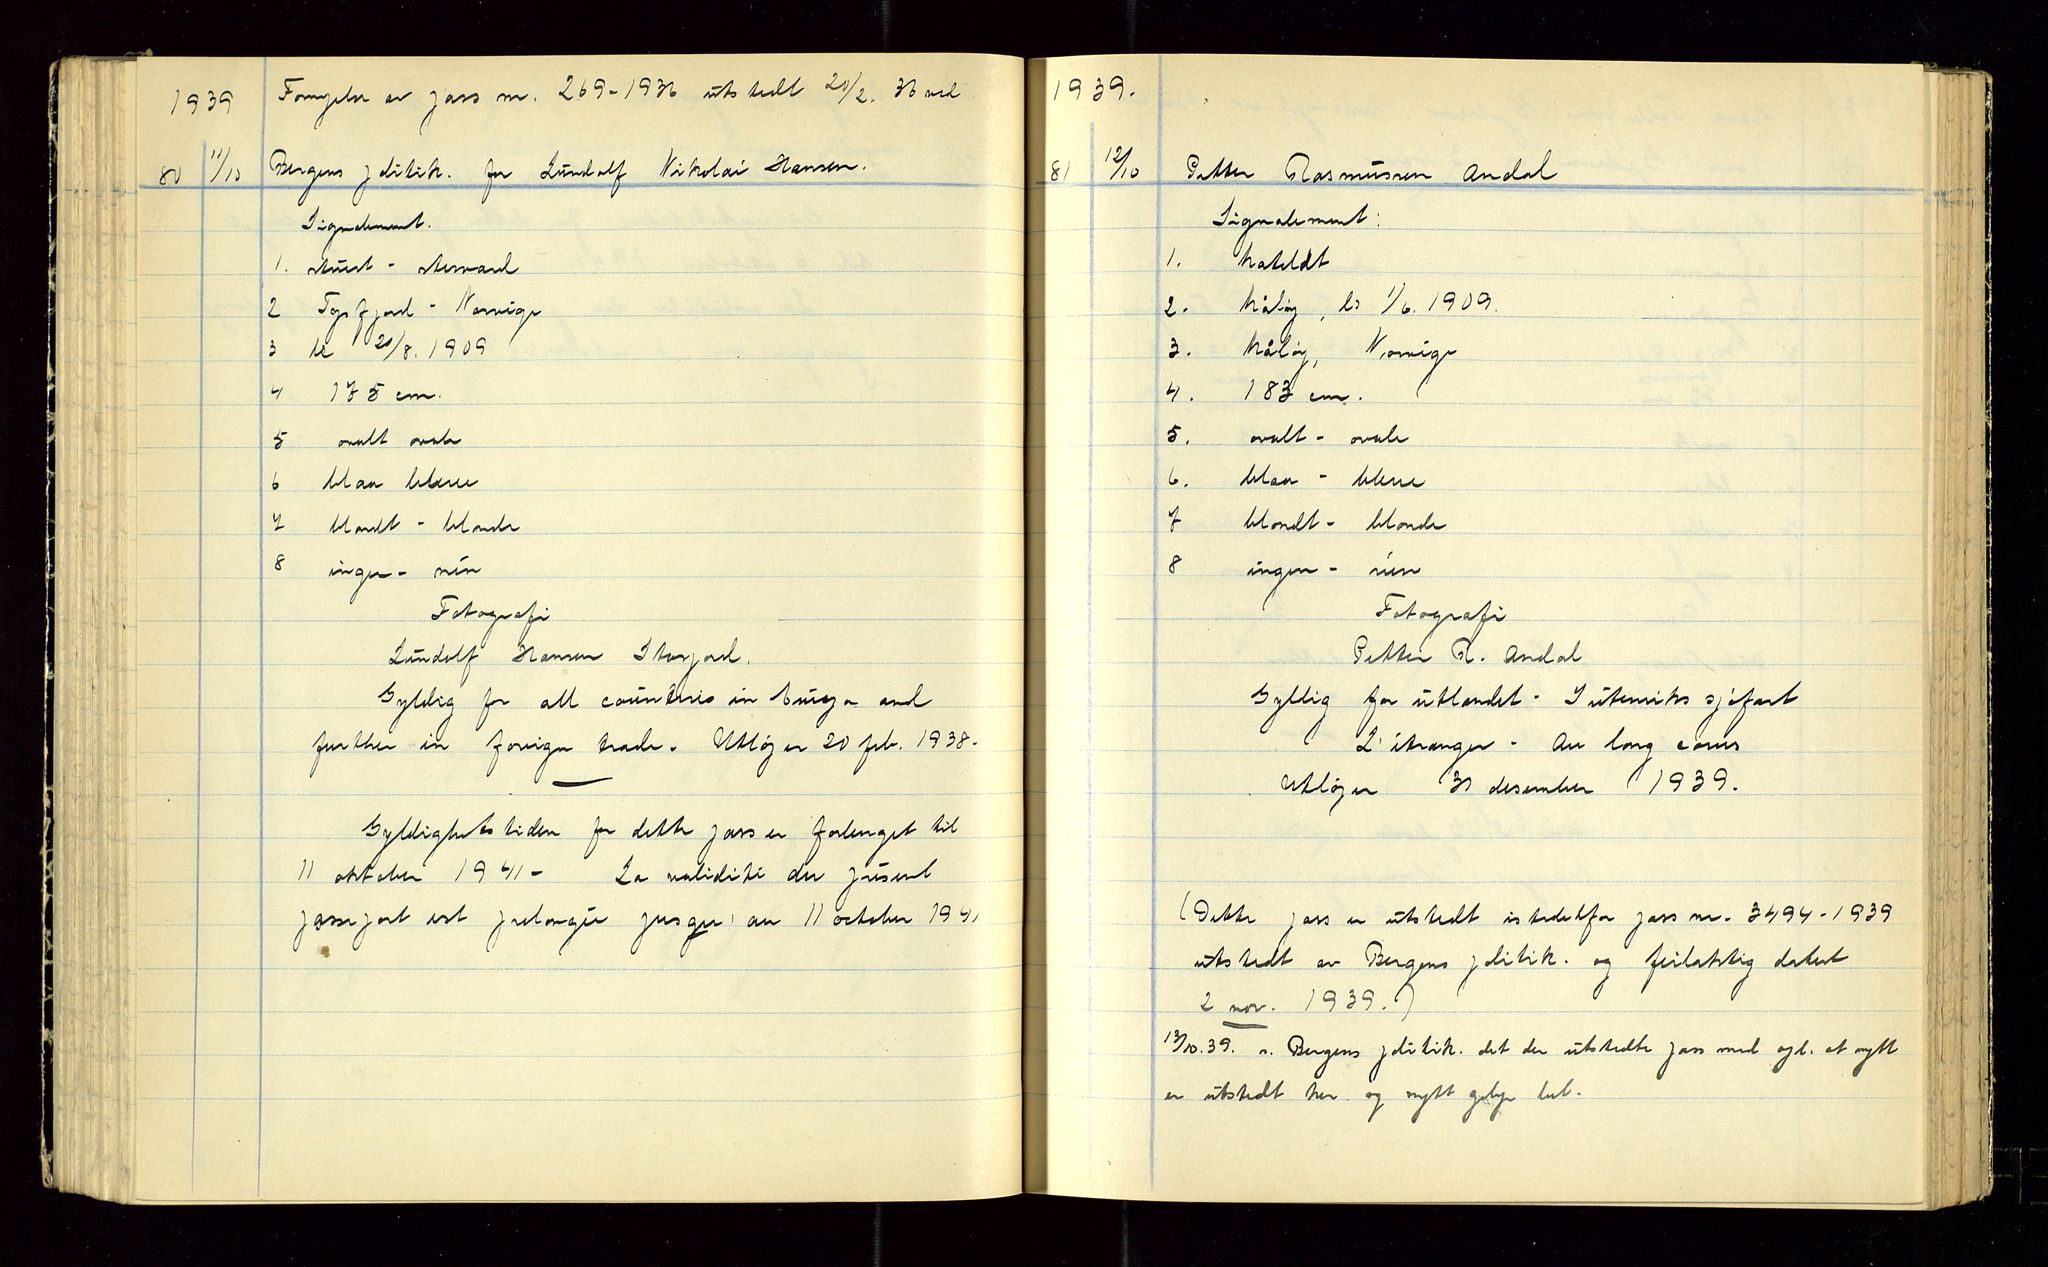 1939 Fornyelse av pass nr. 269-1936 utstedt 20/2. 36 ved
80 11/10 Bergens politik. for Lundolf Nikolai Hansen.
Signalement.
1. stuert - steward
2 Tysfjord - Norvège
3 le 20/8. 1909
4 175 cm.
5 ovalt ovale
6 blaa bleue
7 blondt - blonde
8 ingen - rien
Fotografi
Lundolf Hansen Storjord.
Gyldig for all countries in Europa and
further in foreign trade. Utløper 20 feb. 1938.
Gyldighetstiden for dette pass er forlenget til
11 oktober 1941 - La validité du présent
passeport est prolongée jusqu' au 11 october 1941
1939.
81 12/10 Petter Rasmussen Andal
Signalement:
1. matelot
2. Måløy, le 1/6. 1909.
3. Måløy, Norvège
4. 183 cm.
5. ovalt - ovale
6. blaa - bleue
7 blondt - blonde
8 ingen - rien
Fotografi
Petter R. Andal
Gyldig for utlandet - I utenriks sjøfart
L'étranger - Au long cours
Utløper 31 desember 1939.
(Dette pass er utstedt istedetfor pass nr. 3494-1939
utstedt av Bergens politik. og feilaktig datert
2 nov. 1939.)
13/10.39. s. Bergens politik. det der utstedte pass med opl. at nytt
er utstedt her og nytt gebyr bet.